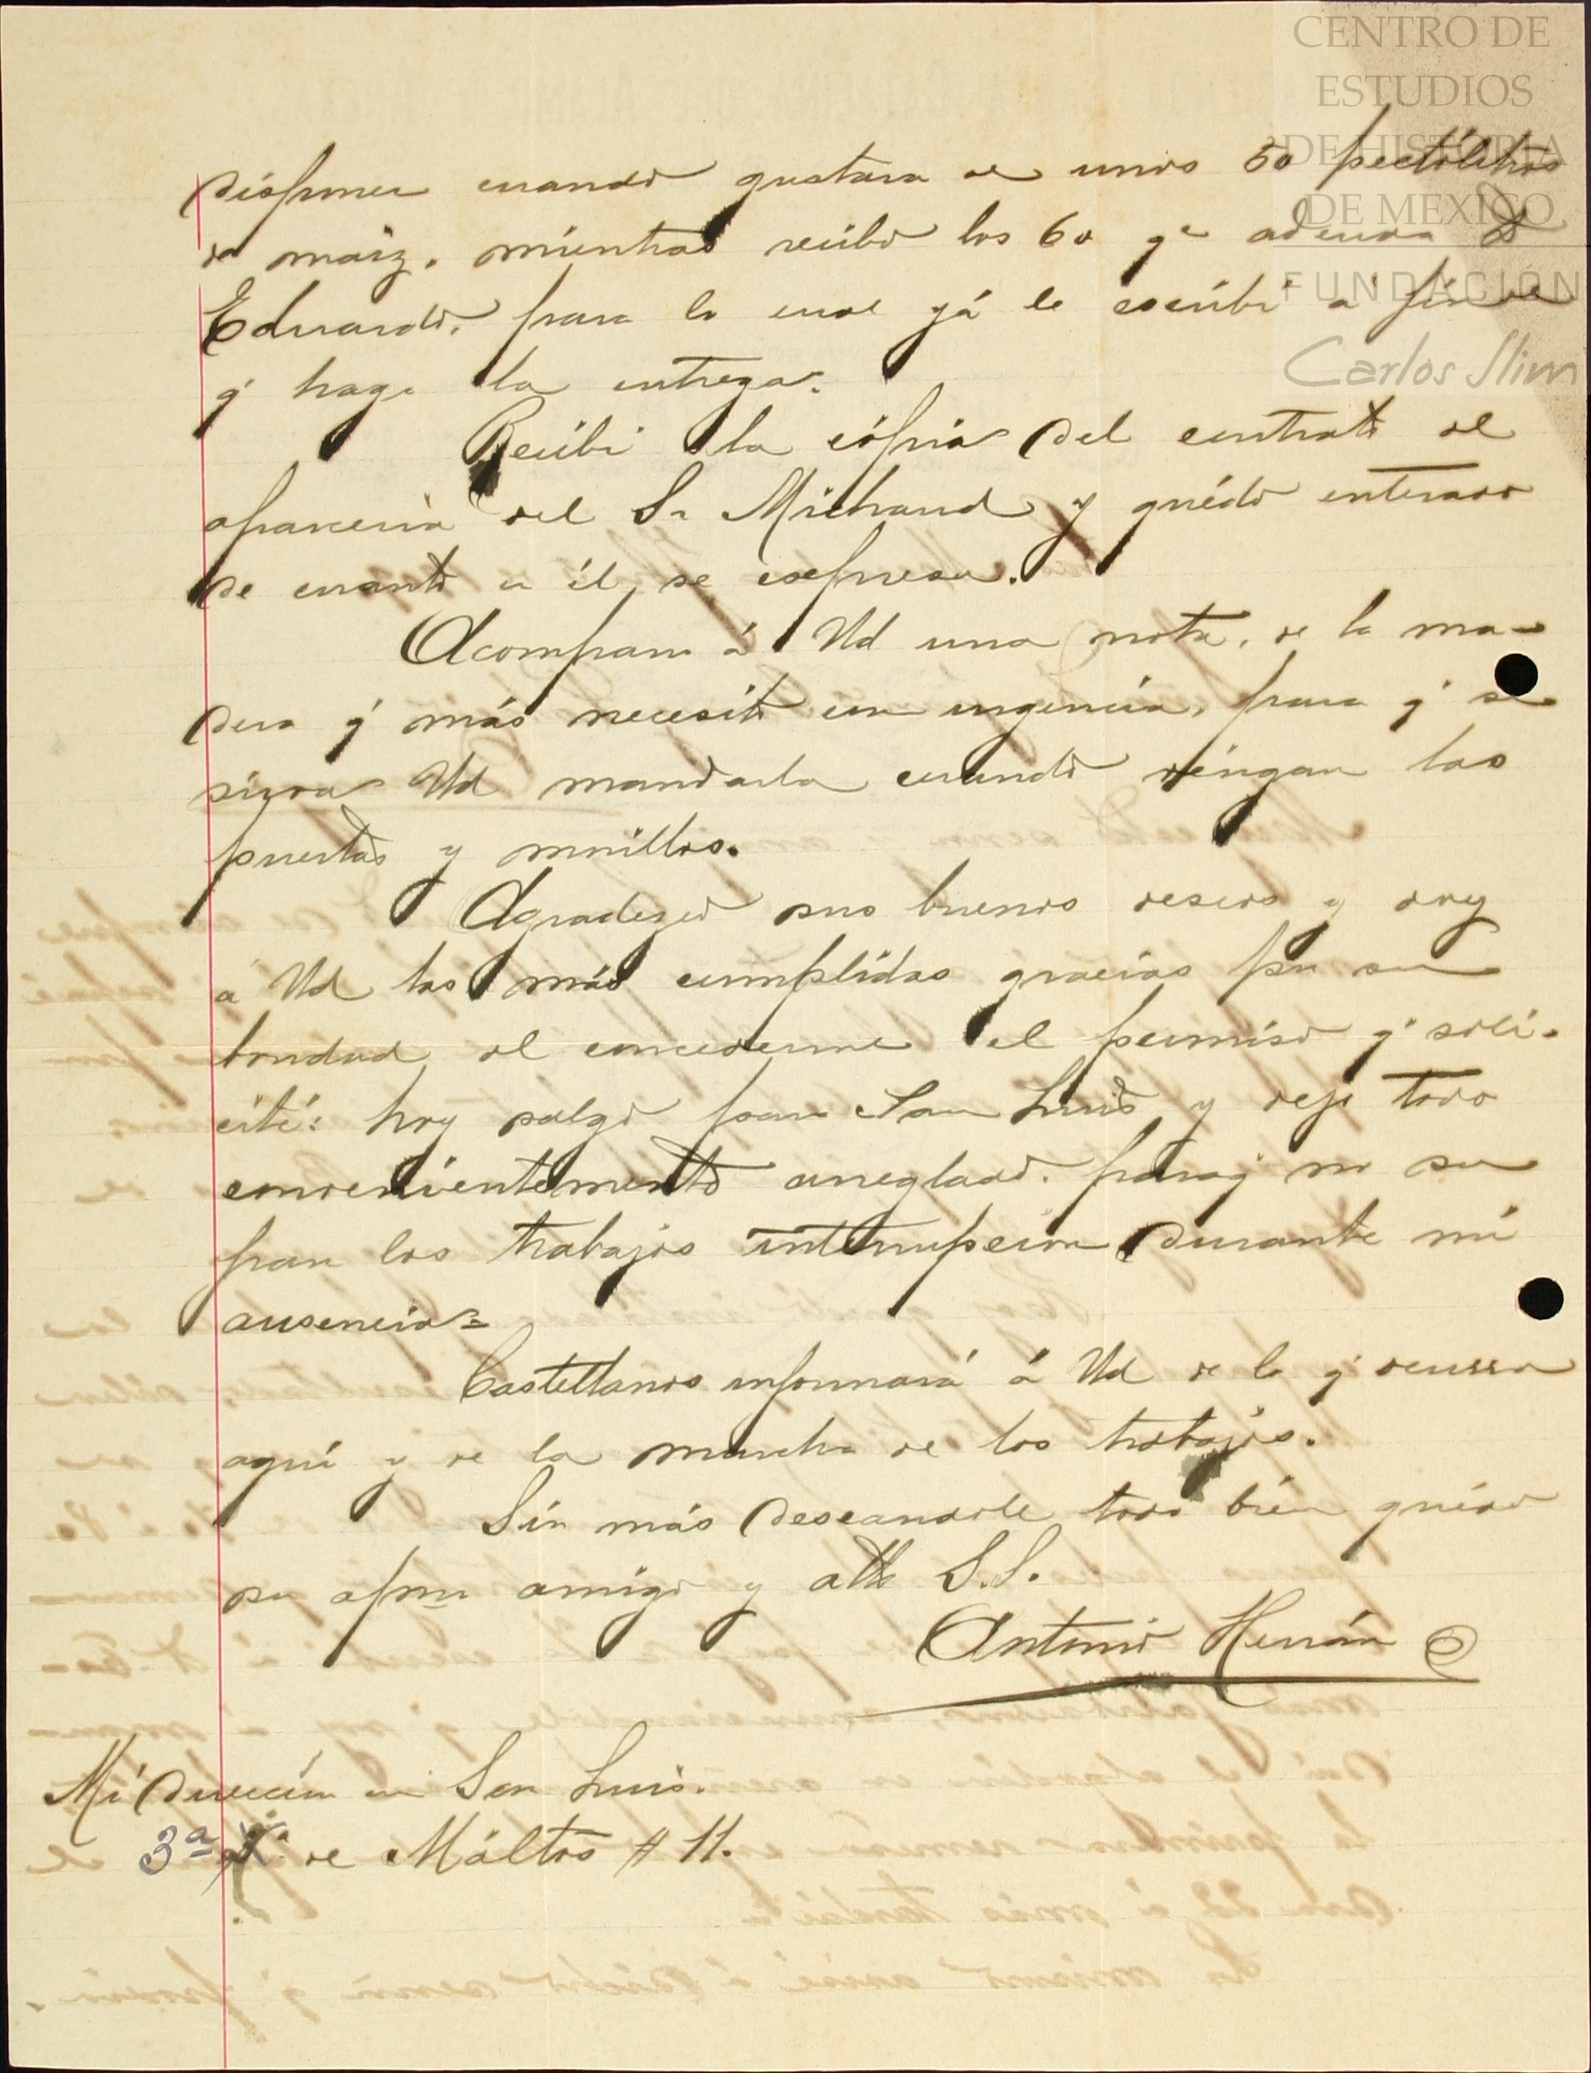 CENTRO DE
ESTUDIOS
DE HISTORIA
DE MEXICO
FUNDACIÓN
Carlos Slim
disponer cuando gustara de unos 50 hectólitros
de maíz, mientras recibo los 60 qe adeuda D
Eduardo, para lo cual yá le escribí a' fin de
q' haga la entrega.
Recibí la cópia del contrato de
aparcería del Sr Michaud y quédo enterado
de cuanto en él se expresa.
Acompaño á Ud una nota, de la ma-
dera q' más necesito con urgencia, para q' se
sirva Ud mandarla cuando vengan las
puertas y morillos.
Agradezco sus buenos deseos y doy
a' Ud las más cumplidas gracias por su
bondad al concederme el permiso q' soli-
cité: hoy salgo para San Luis y dejo todo
convenientemente arreglado. paraq' no su
fran los trabajos interrupcion durante mi
ausencia=
Castellanos informará á Ud de lo q' ocurra
aquí y de la marcha de los trabajos.
Sin más deseandole todo bién quédo
su afmo amigo y atto S.S.
Antonio Herrán
Mi dirección en San Luis.
3ª de Máltos # 11.